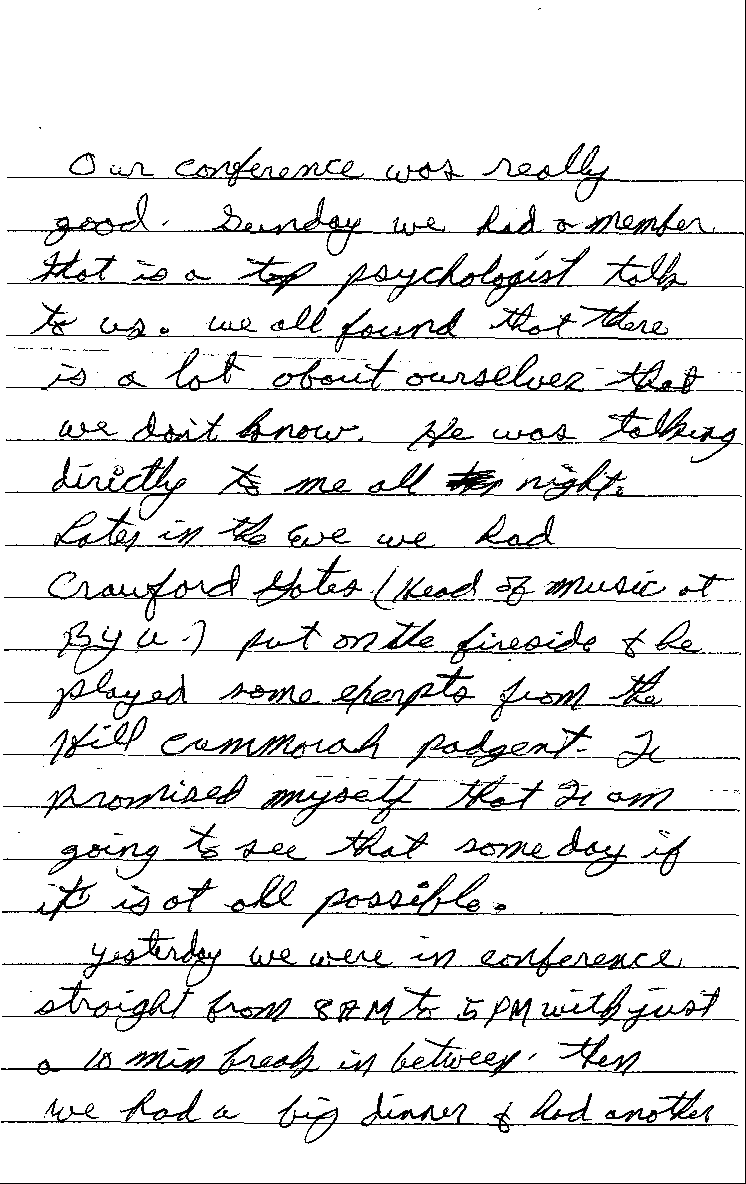 Our conference was really
good. Sunday we had a member
that is a top psychologist talk
to us. we all found that there
is a lot about ourselves that
we don't know. He was talking
directly to me all night.
Later in the Eve we had
Crawford Gates (Head of music at
BYU.) put on the fireside & he
played some exerpts from the
Hill Cummorah padgent. I
promised myself that I am
going to see that some day if
it is at all possible.
Yesterday we were in conference
straight from 8 AM to 5 PM with just
a 10 min break in between. then
we had a big dinner & had another